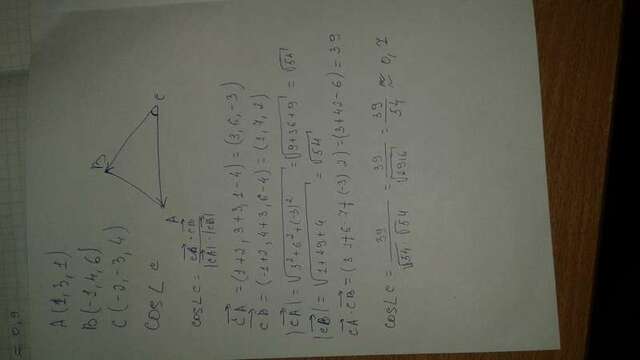 = 0,9
A(1, 3, 1)
B(-1, 4, 6)
C(-2, -3, 4)
cos∠C
B
A
C
cos∠C = CA · CB / |CA| · |CB|
CA = (1+2, 3+3, 1-4) = (3, 6, -3)
CB = (-1+2, 4+3, 6-4) = (1, 7, 2)
|CA| = √3²+6²+(-3)² = √9+36+9 = √54
|CB| = √1+49+4 = √54
CA · CB = (3 · 1+6 · 7+(-3) · 2) = (3+42-6) = 39
cos∠C = 39 / √54 · √54 = 39 / √2916 = 39 / 54 ≈ 0,7